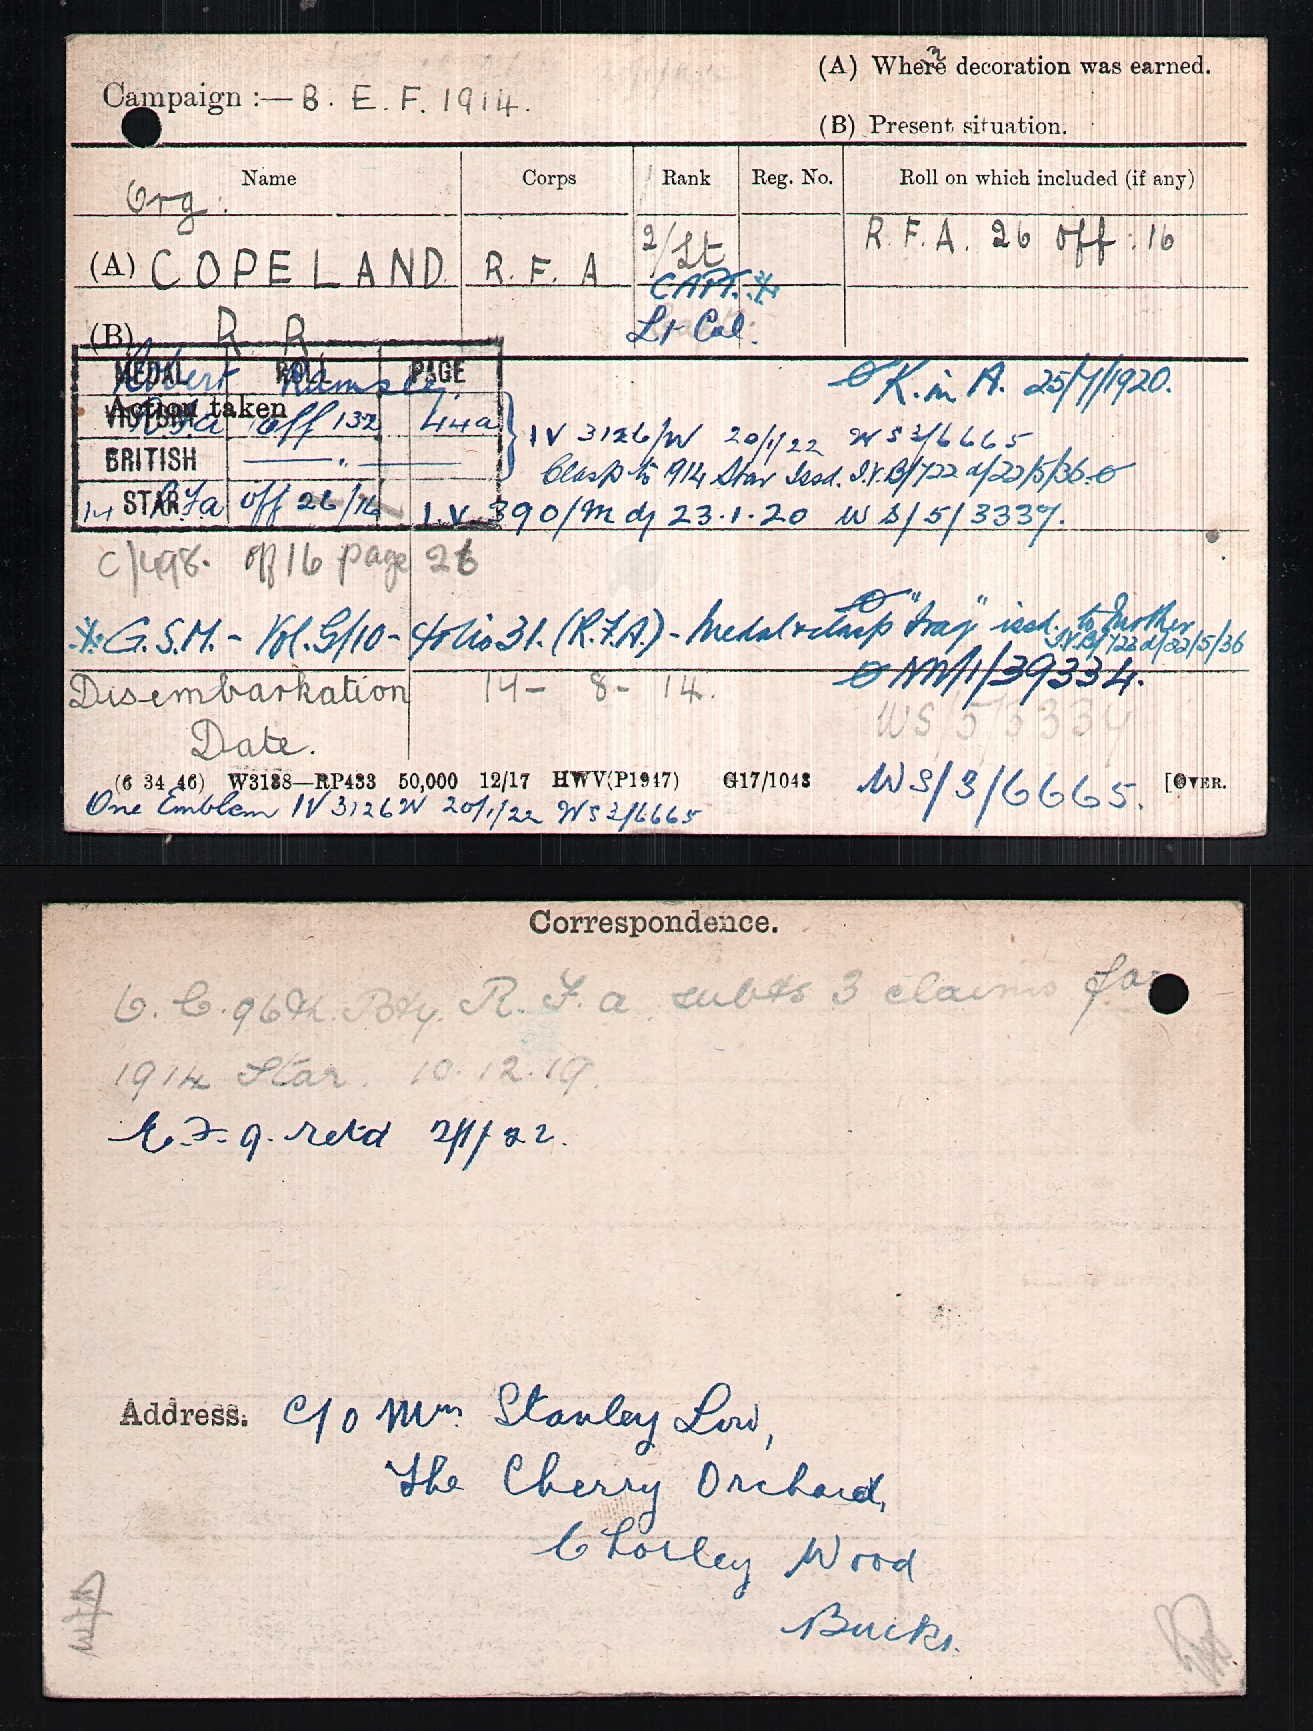 (A) Where decoration was earned.
Campaign :— B. E. F. 1914.
(B) Present situation.
Name Corps Rank Reg. No. Roll on which included (if any)
Org:
(A) COPELAND R. F. A 2/Lt R. F. A. 26 Off: 16
CAPT. *
(B) R. R. Lt Col.
Robert
MEDAL ROLL PAGE
K. in A. 25/7/1920.
Action taken
VICTORY R.F.A Off 132 44a
IV 3126/W 20/1/22 WS3/6665
BRITISH — " —
Clasp to 1914 Star Issd. I.V.B/722 d/22/5/36
14 STAR R.F.A Off 26/16 I.V. 390/M d/ 23.1.20 WS/5/3337.
C/498. Off 16 page 26
* G.S.M. - Vol. G/10 - folio 31. (R.F.A.) - Medal & clasp "Iraq" issd. to Mother
I.V.B/722 d/22/5/36
NW/1/39334.
Disembarkation 14 - 8 - 14.
WS/5/3337
Date.
(6 34 46) W3188—RP433 50,000 12/17 HWV(P1947) G17/1048 WS/3/6665. [OVER.
One Emblem IV 3126W 20/1/22 WS3/6665
Correspondence.
O. C. 96th Bty. R. F. A. subts 3 claims for
1914 Star. 10.12.19.
E. F. 9. retd 2/1/22.
Address. C/o Mrs. Stanley Low,
The Cherry Orchard,
Chorley Wood
Bucks.